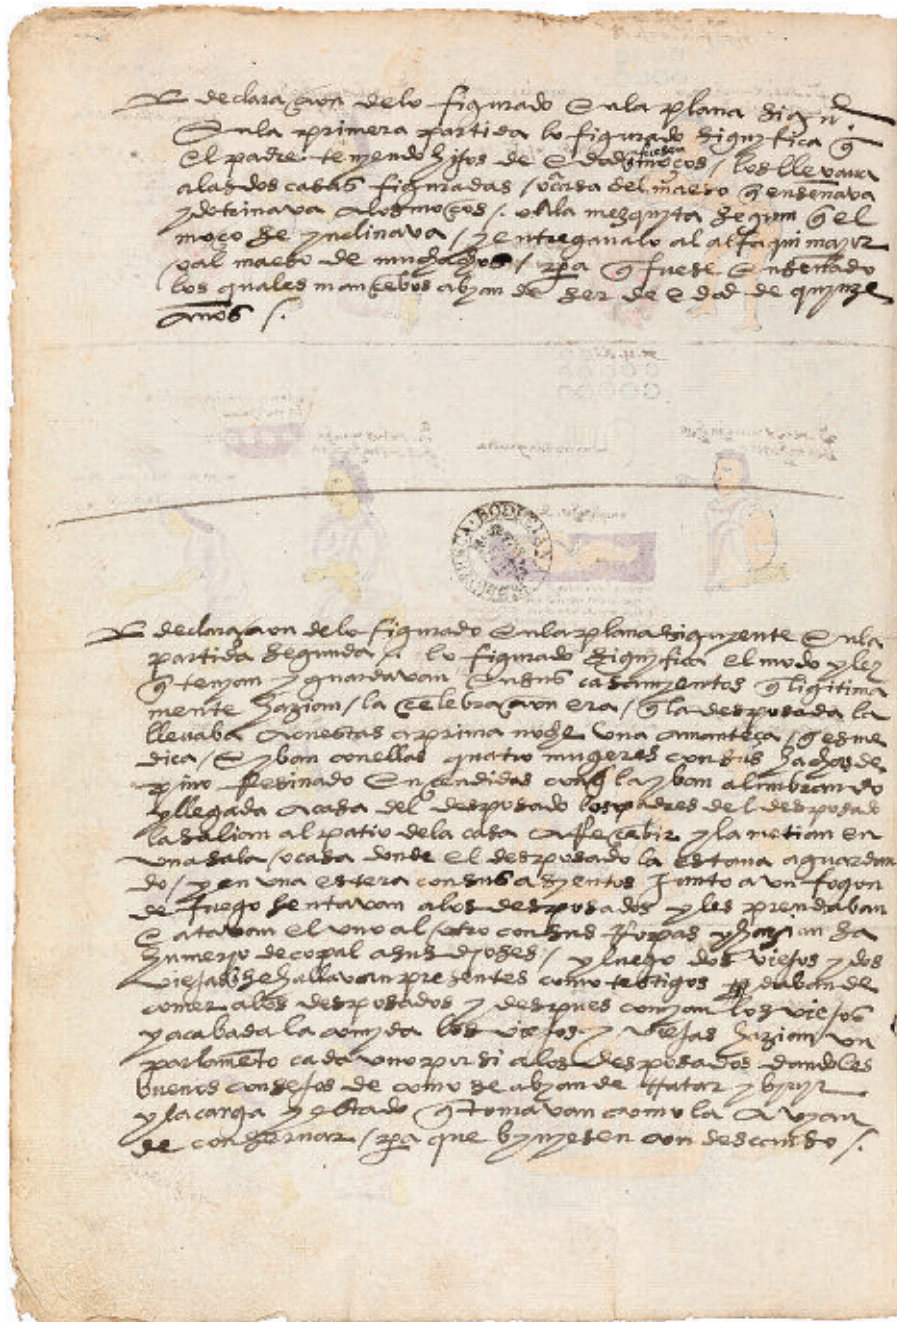 declaraçion delo figurado en la plana sigui
En la primera partida lo figurado sinyfica q̃
el padre tenyendo hijos de edad moços / los llevava
alas dos casas figuradas / o casa del maeso q̃ enseñava
y dotrinava a los moços / o ala mezquyta segun q̃ el
moço se ynclinava / y entregavalo al alfaqui mayor
o al maeso de muchachos / pa q̃ fuese enseñado
los quales mançebos abyan de ser de edad de quynze
años /.
declaraçion delo figurado en la plana siguyente en la
partida segunda /. lo figurado sinyfica el modo y ley
q̃ tenyan y guardavan en sus casamyentos q̃ ligitima
mente hazian / la çelebraçion era / q̃ la desposada la
llevaba a cuestas a prima noche una amanteça / q̃ es me
dica / e yban con ellas quatro mugeres con sus hachas de
pino rresinado ençendidas con q̃ la yban alumbrando
y llegada a casa del desposado los padres del desposado
la salian al patio dela casa a rreçebir y la metian en
una sala / o casa donde el desposado la estava aguardan
do / y en una estera con sus asyentos junto a un fogon
de fuego sentavan alos desposados y les prendaban
e atavan el uno al otro con sus rropas y hazian sa
humeryo de copal a sus dioses / y luego dos viejos y dos
viejas q̃ se hallavan presentes como testigos daban de
comer alos desposados y despues comyan los viejos
y acabada la comyda los viejos y viejas hazian un
parlamẽto cada uno por si alos desposados dandoles
buenos consejos de como se abyan de tratar y byvir
y la carga y estado q̃ tomavan como la avyan
de conservar / pa que byvyesen con descanso /.